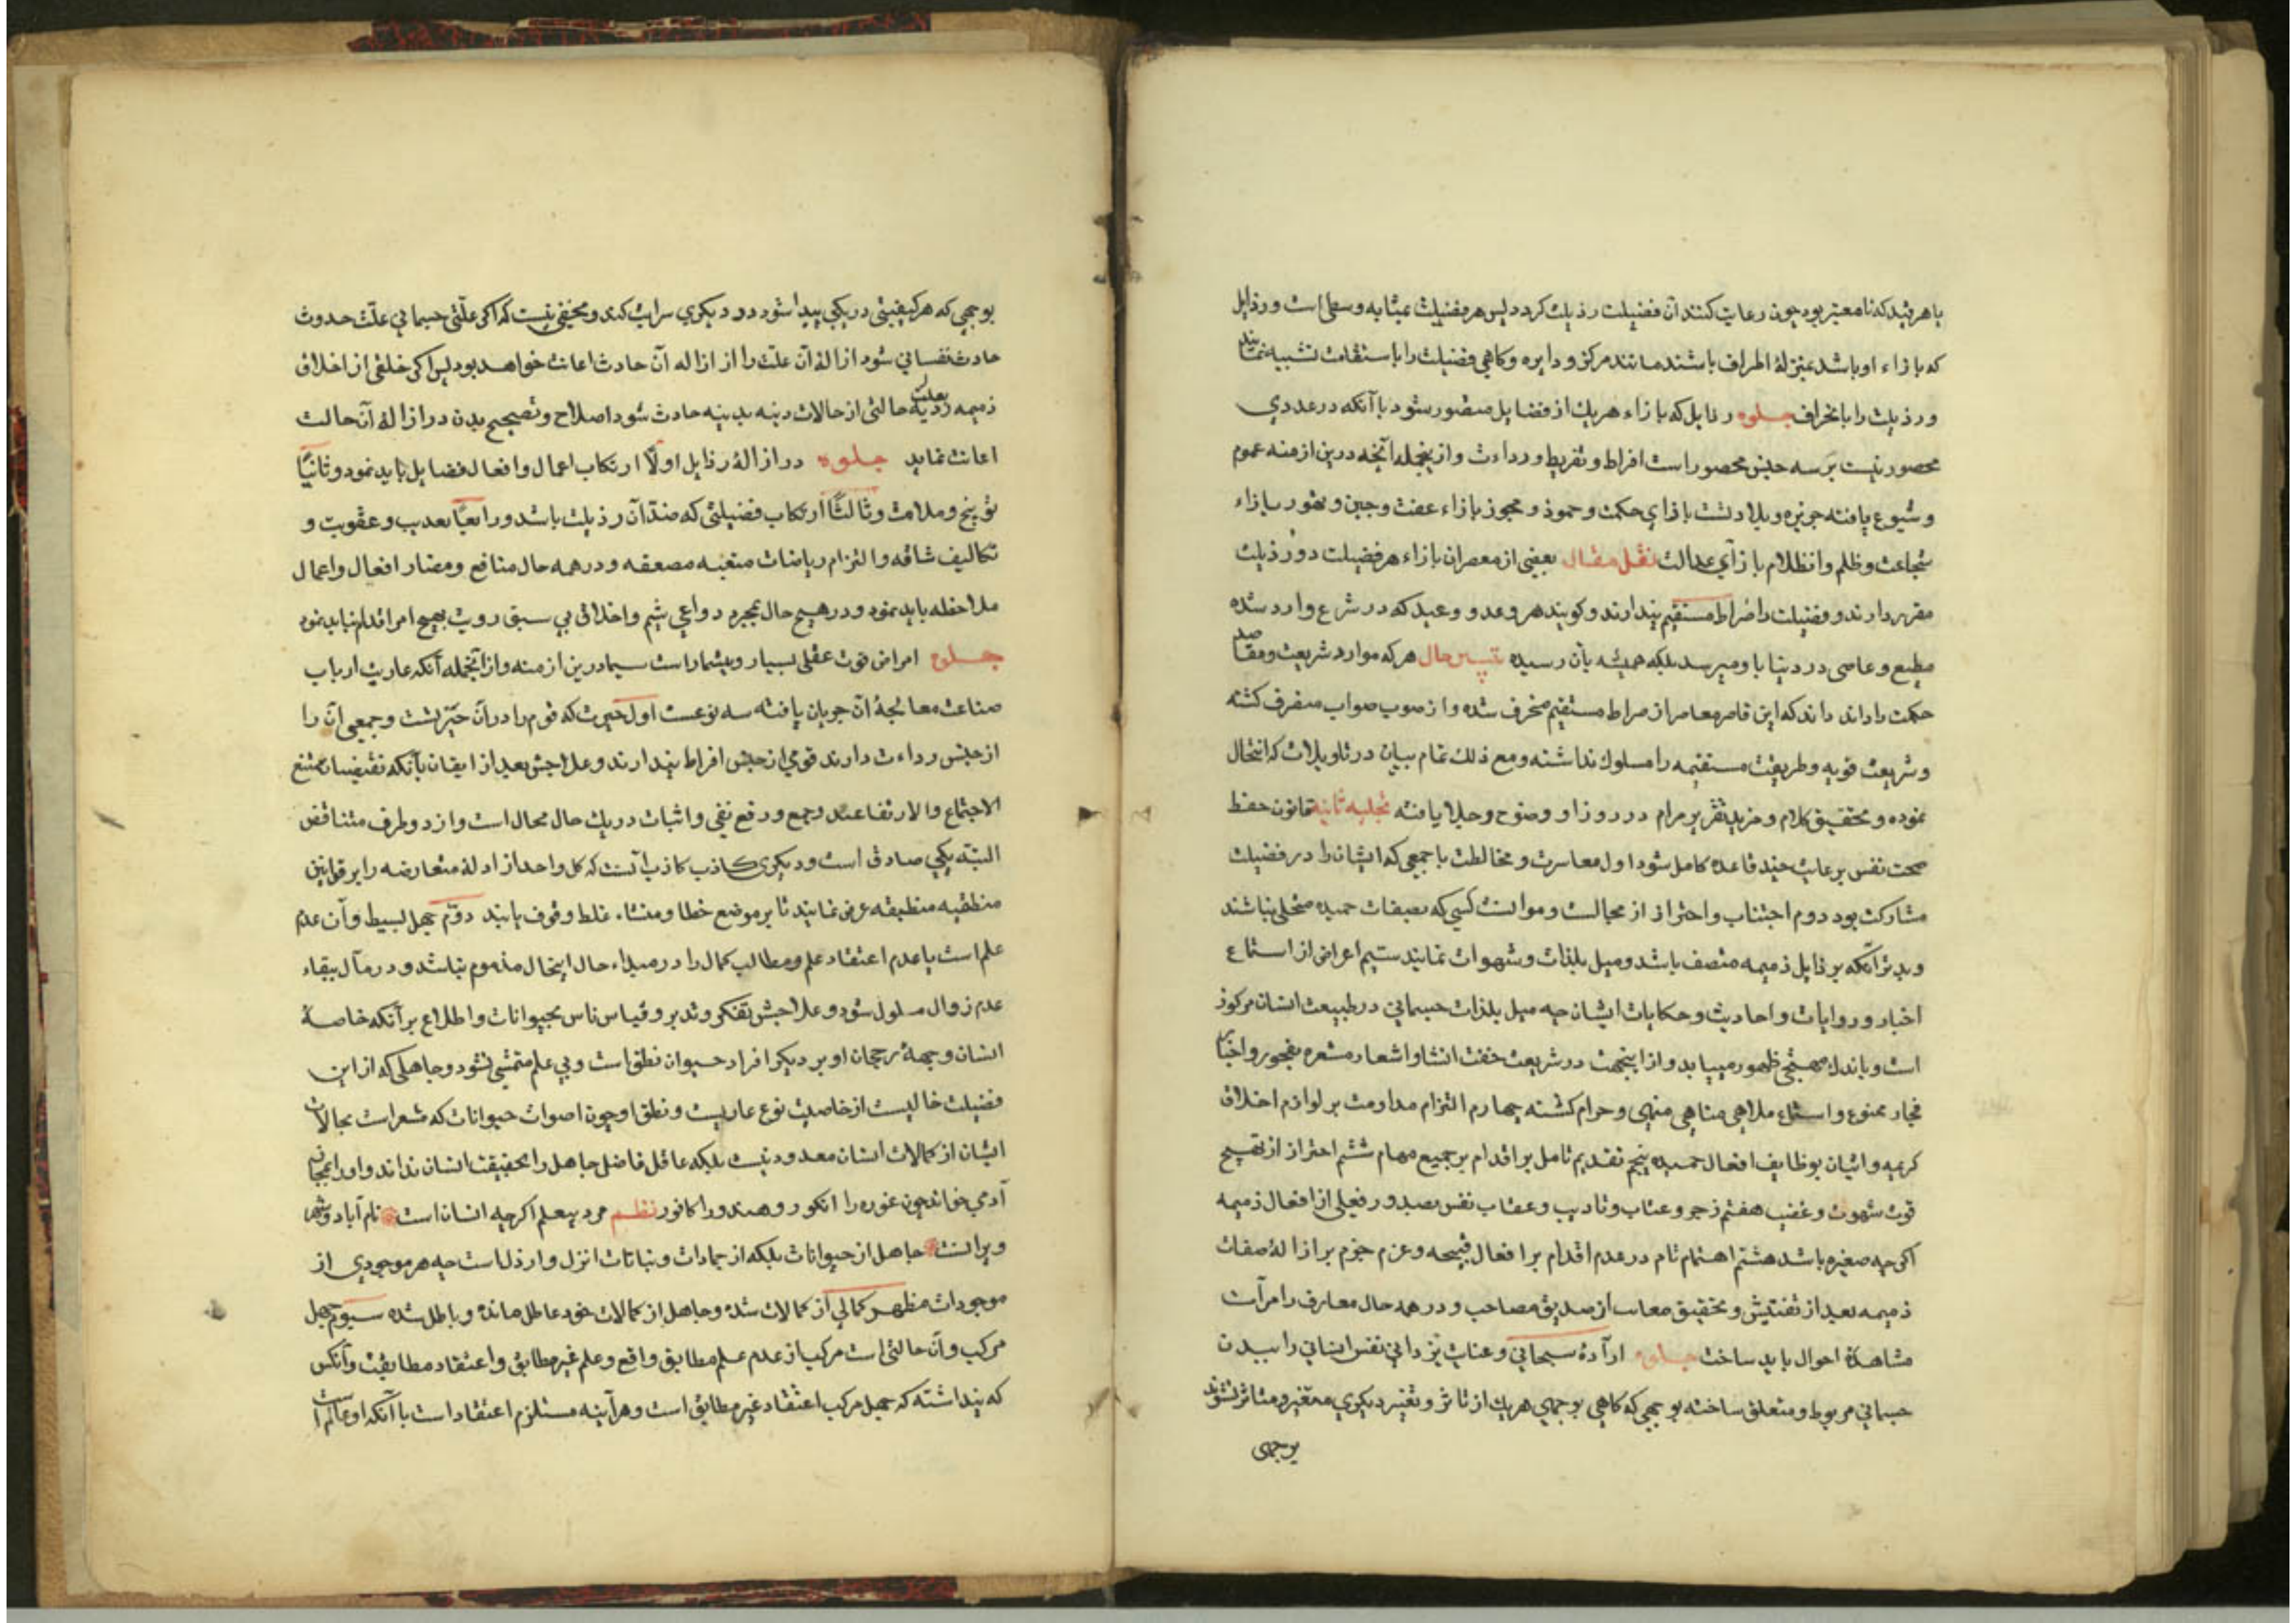 با هر قید که نامعتبر بود چون رعایت کنند آن فضیلت رذیلت کردد پس هر فضیلت بمثابه وسط است و رذایل
که بازاء او باشد بمنزلهٔ اطراف باشند مانند مرکز و دایره و کاهی فضیلت را باستقامت تشبیه نمایند
و رذیلت را بانحراف جلوه رذایل که بازاء هر یک از فضایل متصور شود با آنکه در عددی
محصور نیست بر سه جنس محصور است افراط و تفریط و رداءت و از انجمله آنچه درین ازمنه عموم
و شیوع یافته جربزه و بلادتست بازای حکمت و خمود و فجور بازاء عفت و جبن و تهور بازاء
شجاعت و ظلم و انظلام بازای عدالت نقل مقال بعضی از معصران بازاء هر فضیلت دو رذیلت
مقرر دارند و فضیلت را صراط مستقیم پندارند و کویند هر وعد و وعید که در شرع وارد شده
مطیع و عاصی در دنیا باو میرسد بلکه همیشه بآن رسیده تبیین حال هر که موارد شریعت و مقاصد
حکمت را داند داند که این قاصر معاصر از صراط مستقیم منحرف شده و از صوب صواب منصرف کشته
و شریعت قویه و طریقت مستقیمه را مسلوک نداشته و مع ذلک تمام بیان در تاویلات که انتحال
نموده و بتحقیق کلام و مزید تقریر مرام در دو زاو وضوح و جلا یافته تجلیه ثانیه قانون حفظ
صحت نفس برعایت چند قاعده کامل شود اول معاشرت و مخالطت با جمعی که ایشان را در فضیلت
مشارکت بود دوم اجتناب و احتراز از مجالست و موانست کسی که بصفات حمیده متحلی نباشند
و بدتر آنکه برذایل ذمیمه متصف باشد و میل بلذات و شهوات نمایند سیم اعراض از استماع
اخبار و روایات و احادیث و حکایات ایشان چه میل بلذات جسمانی در طبیعت انسان مرکوز
است و باندک مهیجی ظهور مییابد و از اینجهت در شریعت حقت انشاو اشعار مشعره بفجور و اخبار
فجار ممنوع و استماع ملاهی مناهی منهی و حرام کشته چهارم التزام مداومت بر لوازم اخلاق
کریمه و اتیان بوظایف افعال حمیده پنجم تقدیم تامل بر اقدام بر جمیع مهام ششم احتراز از تهییج
قوت شهوت و غضب هفتم زجر و عتاب و تادیب و عقاب نفس بصدور فعلی از افعال ذمیمه
اکرچه صغیره باشد هشتم اهتمام تام در عدم اقدام بر افعال قبیحه و عزم جزم بر ازالهٔ صفات
ذمیمه بعد از تفتیش و تحقیق معایب از صدیق مصاحب و در همه حال معارف را مرآت
مشاهدهٔ احوال باید ساخت جلوه ارآدهٔ سبحانی و عنایت یزدانی نفس انسانی را ببدن
جسمانی مربوط و متعلق ساخته بوجهی که کاهی بوجهی هر یک از تاثر و تغیر دیکری متغیر و متاثر نشوند
بوجهی
بوجهی که هر کیفیتی در یکی پیدا شود در دیکری سرایت کند و مخفی نیست که اکر علّتی جسمانی علّت حدوث
حادث نفسانی شود ازالهٔ آن علّت را از ازاله آن حادث اعانت خواهد بود پس اکر خلقی از اخلاق
ذمیمه ردیه بعلت حالتی از حالات دینه بدنیه حادث شود اصلاح و تصحیح بدن در ازالهٔ آن حالت
اعانت نماید جلوه در ازالهٔ رذایل اولًا ارتکاب اعمال و افعال فضایل باید نمود و ثانیًا
توبیخ و ملامت و ثالثًا ارتکاب فضیلتی که ضدّ آن رذیلت باشد و رابعًا تعذیب و عقوبت و
تکالیف شاقه و التزام ریاضات متعبه مصعقه و در همه حال منافع و مضار افعال و اعمال
ملاحظه باید نمود و در هیچ حال بمجرد دواعی شیم و اخلاق بی سبق رویت بهیچ امر اقدام نباید نمود
جلوه امراض قوت عقلی بسیار و بیشمار است سیما درین ازمنه و از آنجمله آنکه عاریت ارباب
صناعت معالجهٔ آن جریان یافته سه نوعست اول حیرت که قوم را در آن حیّریست و جمعی آن را
از جنس رداءت دارند قومی از جنس افراط پندارند و علاجش بعد از ایقان بآنکه نقیضان ممتنع
الاجتماع والارتفاعند و جمع و رفع نفی و اثبات در یک حال محال است و از دو طرف متناقض
البته یکی صادق است و دیکری کاذب آنست که کل واحد از ادلهٔ متعارضه را بر قوانین
منطقیه منطبقه عرض نمایند تا بر موضع خطا و منشاء غلط وقوف یابند دوّم جهل بسیط و آن عدم
علم است با عدم اعتقاد علم و مطالب کمال را در مبداء حال اینحال مذموم نباشد و در مآل ببقاء
عدم زوال مسلول شود و علاجش تفکر و تدبر و قیاس ناس بحیوانات و اطلاع بر آنکه خاصهٔ
انسان و جههٔ رجحان او بر دیکر افراد حیوان نطق است و بی علم متمشی نشود و جاهلی که از این
فضیلت خالیست از خاصیت نوع عاریست و نطق او چون اصوات حیوانات که مشعر است بحالات
ایشان از کمالات انسان معدود نیست بلکه عاقل فاضل جاهل را بحقیقت انسان نداند و او را بمجاز
آدمی خواند چون غوره را انکور و هندو را کافور نظم مرد بیعلم اکرچه انسان است نام آباد و شهر
ویرانست جاهل از حیوانات بلکه از جمادات و نباتات انزل و ارذل است چه هر موجودی از
موجودات مظهر کمالی از کمالات شده و جاهل از کمالات خود عاطل مانده و باطل شده سیوم جهل
مرکب و آن حالتی است مرکب از عدم علم مطابق واقع و علم غیر مطابق و اعتقاد مطابقت و آنکس
که پنداشته که جهل مرکب اعتقاد غیر مطابق است و هرآینه مستلزم اعتقاد است با آنکه او عالم است